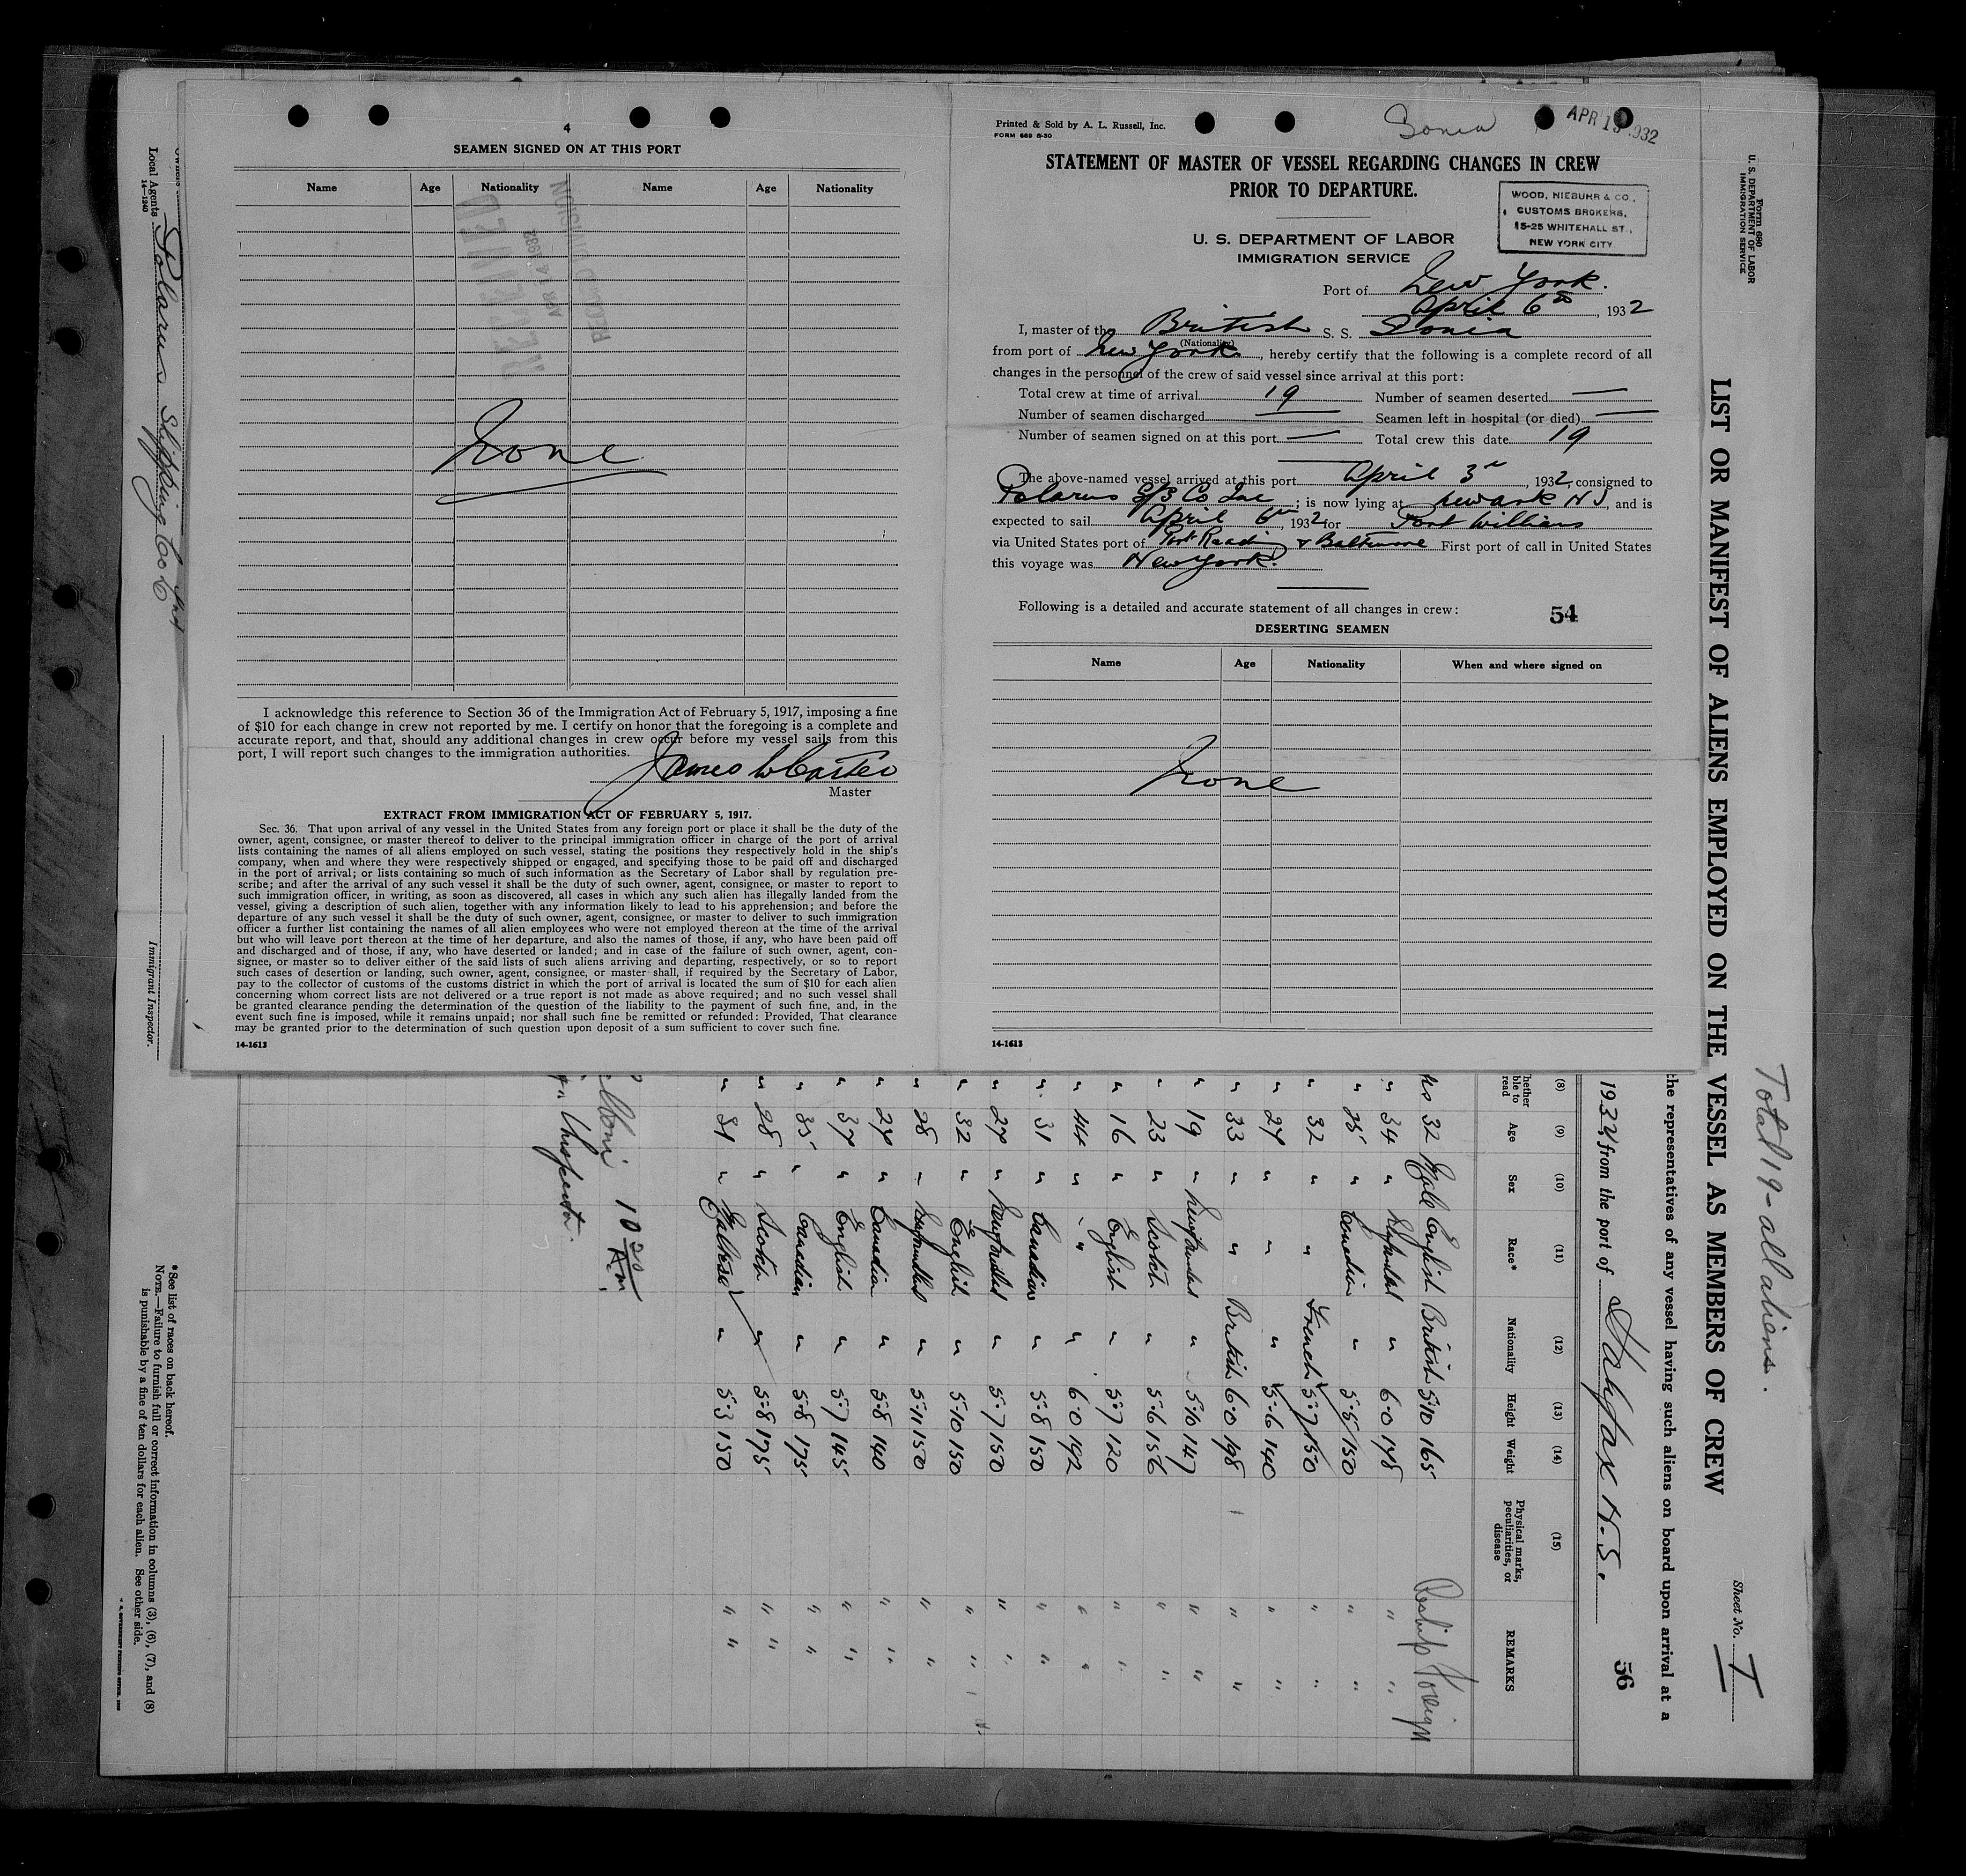 4
SEAMEN SIGNED ON AT THIS PORT
Name Age Nationality Name Age Nationality
RECEIVED
APR 14 1932
RECORD DIVISION
None
I acknowledge this reference to Section 36 of the Immigration Act of February 5, 1917, imposing a fine
of $10 for each change in crew not reported by me. I certify on honor that the foregoing is a complete and
accurate report, and that, should any additional changes in crew occur before my vessel sails from this
port, I will report such changes to the immigration authorities.
James W Carter
Master
EXTRACT FROM IMMIGRATION ACT OF FEBRUARY 5, 1917.
Sec. 36. That upon arrival of any vessel in the United States from any foreign port or place it shall be the duty of the
owner, agent, consignee, or master thereof to deliver to the principal immigration officer in charge of the port of arrival
lists containing the names of all aliens employed on such vessel, stating the positions they respectively hold in the ship's
company, when and where they were respectively shipped or engaged, and specifying those to be paid off and discharged
in the port of arrival; or lists containing so much of such information as the Secretary of Labor shall by regulation pre-
scribe; and after the arrival of any such vessel it shall be the duty of such owner, agent, consignee, or master to report to
such immigration officer, in writing, as soon as discovered, all cases in which any such alien has illegally landed from the
vessel, giving a description of such alien, together with any information likely to lead to his apprehension; and before the
departure of any such vessel it shall be the duty of such owner, agent, consignee, or master to deliver to such immigration
officer a further list containing the names of all alien employees who were not employed thereon at the time of the arrival
but who will leave port thereon at the time of her departure, and also the names of those, if any, who have been paid off
and discharged and of those, if any, who have deserted or landed; and in case of the failure of such owner, agent, con-
signee, or master so to deliver either of the said lists of such aliens arriving and departing, respectively, or so to report
such cases of desertion or landing, such owner, agent, consignee, or master shall, if required by the Secretary of Labor,
pay to the collector of customs of the customs district in which the port of arrival is located the sum of $10 for each alien
concerning whom correct lists are not delivered or a true report is not made as above required; and no such vessel shall
be granted clearance pending the determination of the question of the liability to the payment of such fine, and, in the
event such fine is imposed, while it remains unpaid; nor shall such fine be remitted or refunded: Provided, That clearance
may be granted prior to the determination of such question upon deposit of a sum sufficient to cover such fine.
14-1613
Printed & Sold by A. L. Russell, Inc.
FORM 689 5-30
Sonia
APR 13 1932
STATEMENT OF MASTER OF VESSEL REGARDING CHANGES IN CREW
PRIOR TO DEPARTURE.
WOOD, NIEBUHR & CO.,
CUSTOMS BROKERS,
15-25 WHITEHALL ST.,
NEW YORK CITY
U. S. DEPARTMENT OF LABOR
IMMIGRATION SERVICE
Port of New York.
April 6th, 1932
I, master of the British S. S. Sonia
(Nationality)
from port of New York, hereby certify that the following is a complete record of all
changes in the personnel of the crew of said vessel since arrival at this port:
Total crew at time of arrival 19 Number of seamen deserted —
Number of seamen discharged — Seamen left in hospital (or died) —
Number of seamen signed on at this port — Total crew this date 19
The above-named vessel arrived at this port April 3rd, 1932, consigned to
Polarus S/S Co Inc; is now lying at Newark NJ, and is
expected to sail April 6th, 1932 for Port Williams
via United States port of Port Reading & Baltimore First port of call in United States
this voyage was New York.
Following is a detailed and accurate statement of all changes in crew:
54
DESERTING SEAMEN
Name Age Nationality When and where signed on
None
14-1613
Form 680
U. S. DEPARTMENT OF LABOR
IMMIGRATION SERVICE
Total 19 - all aliens.
LIST OR MANIFEST OF ALIENS EMPLOYED ON THE VESSEL AS MEMBERS OF CREW
Sheet No. 1
the representatives of any vessel having such aliens on board upon arrival at a
from the port of Halifax N.S.
56
(8) (9) (10) (11) (12) (13) (14) (15)
Age Sex Race* Nationality Height Weight Physical marks, peculiarities, or disease REMARKS
32 Male English British 5-10 165 Reship Foreign
" 34 " " 6-0 178 " "
" " Canadian " 150 " "
" 32 " " French 5-7 150 " "
" 27 " " " 5-6 140 " "
" 33 " " British 6-0 198 " "
" 19 " " 5-10 147 " "
" 23 " Scotch " 5-6 156 " "
" 16 " English " 5-7 120 " "
" 44 " " " 6-0 192 " "
" 31 " Canadian " 5-8 150 " "
" 27 " " 5-7 150 " "
" 32 " English " 5-10 150 " "
" 28 " " 5-11 150 " "
" 27 " Canadian " 5-8 140 " "
" 37 " English " 5-7 145 " "
" 35 " Canadian " 5-8 175 " "
" 28 " Scotch " 5-8 175 " "
" 31 " Maltese " 5-3 150 " "
10 20 A.m.
*See list of races on back hereof.
NOTE.—Failure to furnish full or correct information in columns (3), (6), (7), and (8)
is punishable by a fine of ten dollars for each alien. See other side.
Local Agents Polarus Shipping Co
Immigrant Inspector.
14-1240